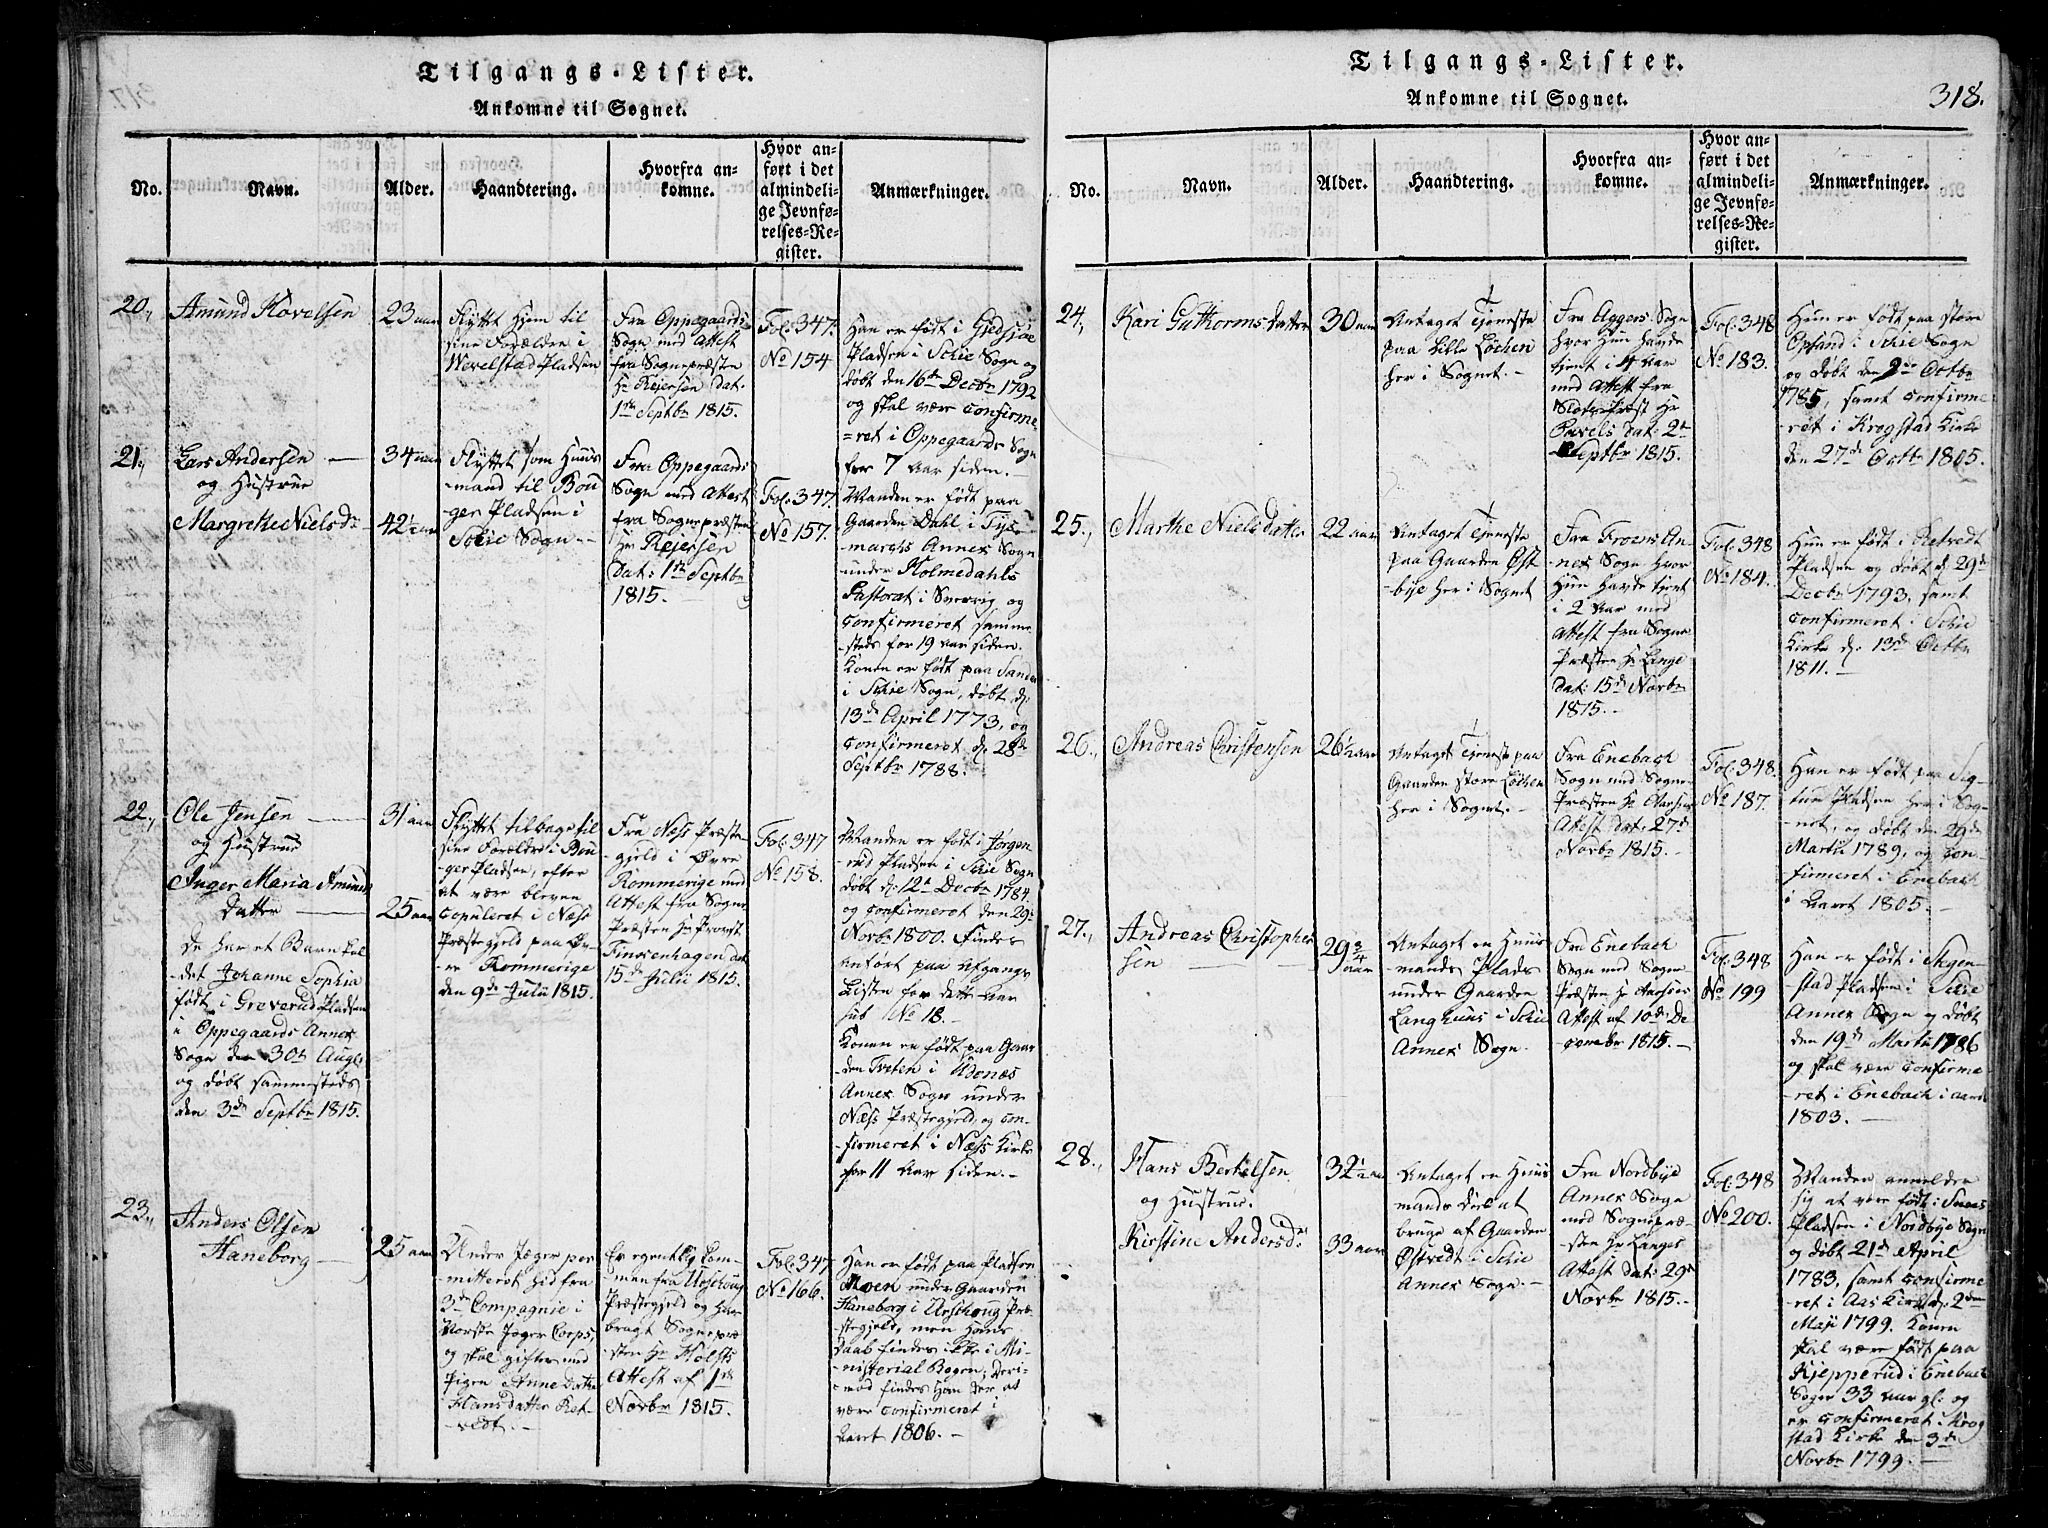 Tilgangs-Lister.
Ankomne til Sognet.
No.
Navn.
Alder.
Haandtering.
Hvorfra an-
komne.
Hvor an-
ført i det
almindeli-
ge Jevnfø-
relses-Re-
gister.
Anmærkninger.
20.,
Amund Hovelsen
23 aar
Flyttet hjem til
sine Forældre i
Wevelstad Pladsen
Fra Oppegaards
Sogn med Attest
fra Sognepræsten
Hr Rejersen dat:
1ste Septbr 1815.
Fol. 347.
No 154
Han er født i Gjedsjøe
Pladsen i Schie Sogn og
døbt den 16de Decbr 1792
og skal være confirme-
=ret i Oppegaards Sogn
for 7 Aar siden.
21.,
Lars Andersen
og Hustrue
Margrethe Nielsdr
34 aar
42½ aar
Flyttet som Huus
mand til Bøu
ger Pladsen i
Schie Sogn
Fra Oppegaards
Sogn med Attest
fra Sognepræsten
Hr Rejersen
dat: 1ste Septbr
1815.
Fol. 347.
No 157.
Manden er født paa
Gaarden Dahl i Tys-
marchs Annex Sogn
under Holmedahls
Pastorat i Sverrig og
confirmeret samme-
steds for 19 Aar siden.
Konen er født paa Sander
i Schie Sogn, døbt d.
13de April 1773, og
confirmeret d. 28de
Septbr 1788.
22.,
Ole Jensen
og Hustrue
Inger Maria Amund
datter
De har et Barn kal
-det Johanne Sophia
født i Greverud Pladsen
i Oppegaards Annex
Sogn den 30te Augs
og døbt sammesteds
den 3de Septbr 1815.
31 aar
25 aar
Flyttet tilbage til
sine Forældre i Bøu
ger Pladsen, efter
at være bleven
copuleret i Næss
Præstegjeld paa Øv-
re Rommerige
den 9de Julii 1815.
Fra Næss Præste-
gjeld i Øvre
Rommerige med
Attest fra Sogne
Præsten Hr Provst
Finckenhagen dat
15de Julii 1815.
Fol. 347
No 158.
Manden er født i Jørgen-
rud Pladsen i Schie Sogn
døbt d. 12te Decbr 1784.
og confirmeret den 29de
Novbr 1800. Findes
anført paa Afgangs
Listen for dette Aar
sub No 18.
Konen er født paa Gaar
-den Treten i Udenæs
Annex Sogn under
Næss Præstegjeld, og con-
-firmeret i Næss Kirke
for 11 Aar siden.
23.,
Anders Olsen
Haneborg
25 aar
Under Jæger per
mitteret hid fra
3die Compagnie i
Norske Jæger Corps,
og skal giftes med
Pigen Anne Dorthe
Hansdatter Ret-
vedt.
Er egentlig kom-
men fra Urschoug
Præstegjeld og har
bragt Sognepræ-
sten Hr Holsts
Attest af 1ste
Novbr 1815.
Fol. 347
No 166.
Han er født paa Pladsen
Moen under Gaarden
Haneborg i Urschoug Præ-
stegjeld, men hans
Daab findes ikke i Mi-
nisterial Bogen; Deri-
-mod findes han der at
være confirmeret i
Aaret 1806.
Tilgangs-Lister.
Ankomne til Sognet.
318.
No.
Navn.
Alder.
Haandtering.
Hvorfra an-
komne.
Hvor an-
ført i det
almindeli-
ge Jevnfø-
relses-Re-
gister.
Anmærkninger.
24.,
Kari Guttormsdatter
30 aar
Antaget Tjeneste
paa Lille Løchen
her i Sognet.
Fra Aggers Sogn
hvor hun havde
tjent i 4 Aar
med Attest fra
Slotspræst Hr
Pavels dat: 2de
Septbr 1815.
Fol. 348
No 183.
Hun er født paa store
Opsand i Schie Sogn
og døbt den 9de Octbr
1785, samt confirme
ret i Krogstad Kirke
den 27de Octbr 1805.
25.,
Marthe Nielsdatter
22 aar
Antaget Tjeneste
paa Gaarden Øst
-bye her i Sognet
Fra Froens An-
nex Sogn hvor
hun havde tjent
i 2 Aar med
Attest fra Sogne
Præsten Hr Lange
dat: 15de Novbr
1815.
Fol. 348
No 184.
Hun er født i Retvedt
Pladsen og døbt d. 29de
Decbr 1793, samt
confirmeret i Schie
Kirke d. 13de Octbr
1811.
26.,
Andreas Christensen
26½ aar
Antaget Tjeneste paa
Gaarden store Løchen
her i Sognet.
Fra Enebach
Sogn med Sogne
Præsten Hr Aarsens
Attest dat: 27de
Novbr 1815.
Fol. 348.
No 187.
Han er født paa Sig-
tum Pladsen her i Sog-
net, og døbt den 29de
Martii 1789, og con-
firmeret i Enebach
i Aaret 1805.
27.,
Andreas Christopher
sen
29¾
aar
Antaget en Huus
mands Plads
under Gaarden
Langhuus i Schie
Annex Sogn.
Fra Enebach
Sogn med Sogne
Præsten Hr Aarsens
Attest af 10de De
-cembr 1815.
Fol. 348
No 199
Han er født i Skgen-
stad Pladsen i Schie
Annex Sogn og døbt
den 19de Martii 1786
og skal være confirme-
-ret i Enebach i aaret
1803.
28.,
Hans Bertelsen
og Hustrue
Kirstine Andersdr
32½ aar
33 aar
Antaget en Huus
mands Deel at
bruge af Gaarden
Østvedt i Schie
Annex Sogn.
Fra Nordbye
Annex Sogn
med Sognepræ-
sten Hr Langes
Attest dat: 29de
Novbr 1815.
Fol. 348
No 200.
Manden anmelder
sig at være født i
Pladsen i Nordbye Sogn
og døbt 21de April
1783, samt confirme
-ret i Aas Kirke d. 2den
Maji 1799. Konen
skal være født paa
Kjepperud i Enebach
Sogn 33 Aar gl. og
er confirmeret i Krog
stad Kirke den 3de
Novbr 1799.